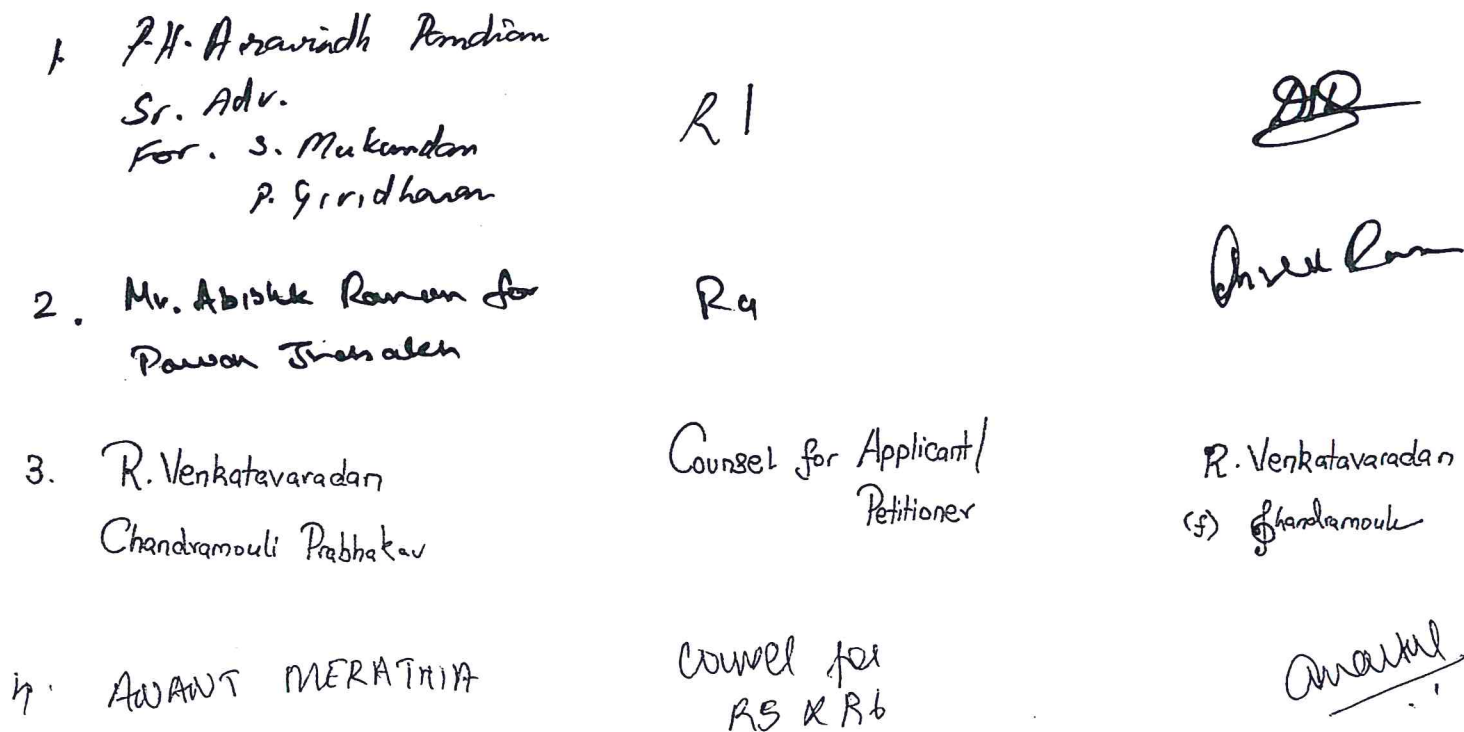 1. P.H. Aravindh Pandian
Sr. Adv.
For. S. Mukundan
P. Giridharan
R1
2. Mr. Abishek Raman for
Pawan
R4
3. R. Venkatavaradan
Chandramouli Prabhakar
Counsel for Applicant/
Petitioner
R. Venkatavaradan
(f) Chandramouli
4. ANANT MERATHIA
Counsel for
R5 & R6